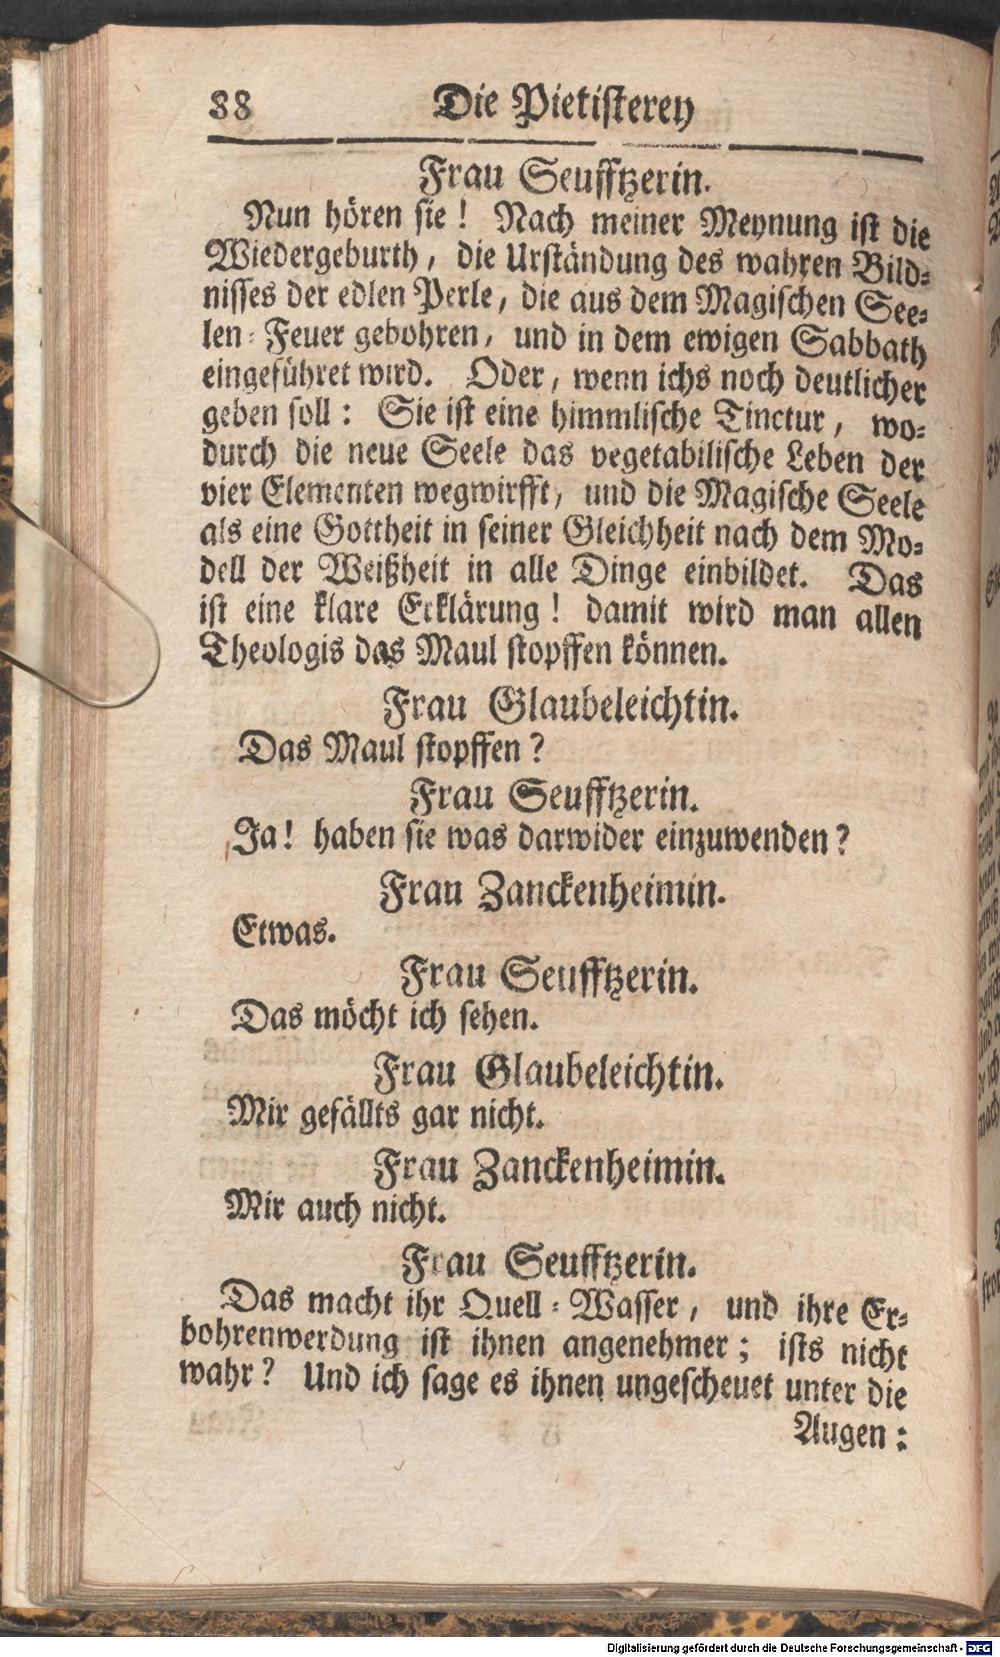 88 Die Pietisterey
Frau Seufftzerin.
Nun hören sie! Nach meiner Meynung ist die
Wiedergeburth, die Urständung des wahren Bild-
nisses der edlen Perle, die aus dem Magischen See-
len-Feuer gebohren, und in dem ewigen Sabbath
eingeführet wird. Oder, wenn ichs noch deutlicher
geben soll: Sie ist eine himmlische Tinctur, wo-
durch die neue Seele das vegetabilische Leben der
vier Elementen wegwirfft, und die Magische Seele
als eine Gottheit in seiner Gleichheit nach dem Mo-
dell der Weißheit in alle Dinge einbildet. Das
ist eine klare Erklärung! damit wird man allen
Theologis das Maul stopffen können.
Frau Glaubeleichtin.
Das Maul stopffen?
Frau Seufftzerin.
Ja! haben sie was darwider einzuwenden?
Frau Zanckenheimin.
Etwas.
Frau Seufftzerin.
Das möcht ich sehen.
Frau Glaubeleichtin.
Mir gefällts gar nicht.
Frau Zanckenheimin.
Mir auch nicht.
Frau Seufftzerin.
Das macht ihr Quell-Wasser, und ihre Er-
bohrenwerdung ist ihnen angenehmer; ists nicht
wahr? Und ich sage es ihnen ungescheuet unter die
Augen:
Digitalisierung gefördert durch die Deutsche Forschungsgemeinschaft - DFG